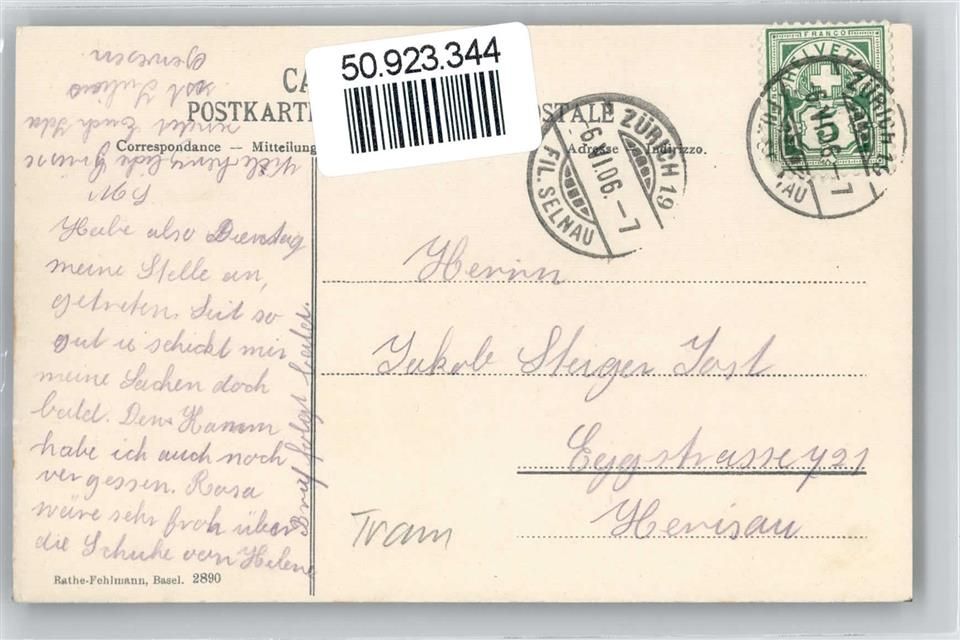 50.923.344
POSTKARTE
STALE
Correspondance — Mitteilung
Adresse — Indirizzo.
FRANCO
HELVETIA
5
ZÜRICH 19
-6.VI.06.-7
FIL. SELNAU
Habe also Dienstag
meine Stelle an,
getreten. Seit so
gut u schickt mir
meine Sachen doch
bald. Den Kamm
habe ich auch noch
vergessen. Rosa
wäre sehr froh über
die Schuhe von Helene
Brief folgt
Viele herzliche Grüsse
sendet Euch
Herrn
Jakob Steiger Jost
Eggstrasse 721
Herisau
Tram
Rathe-Fehlmann, Basel. 2890